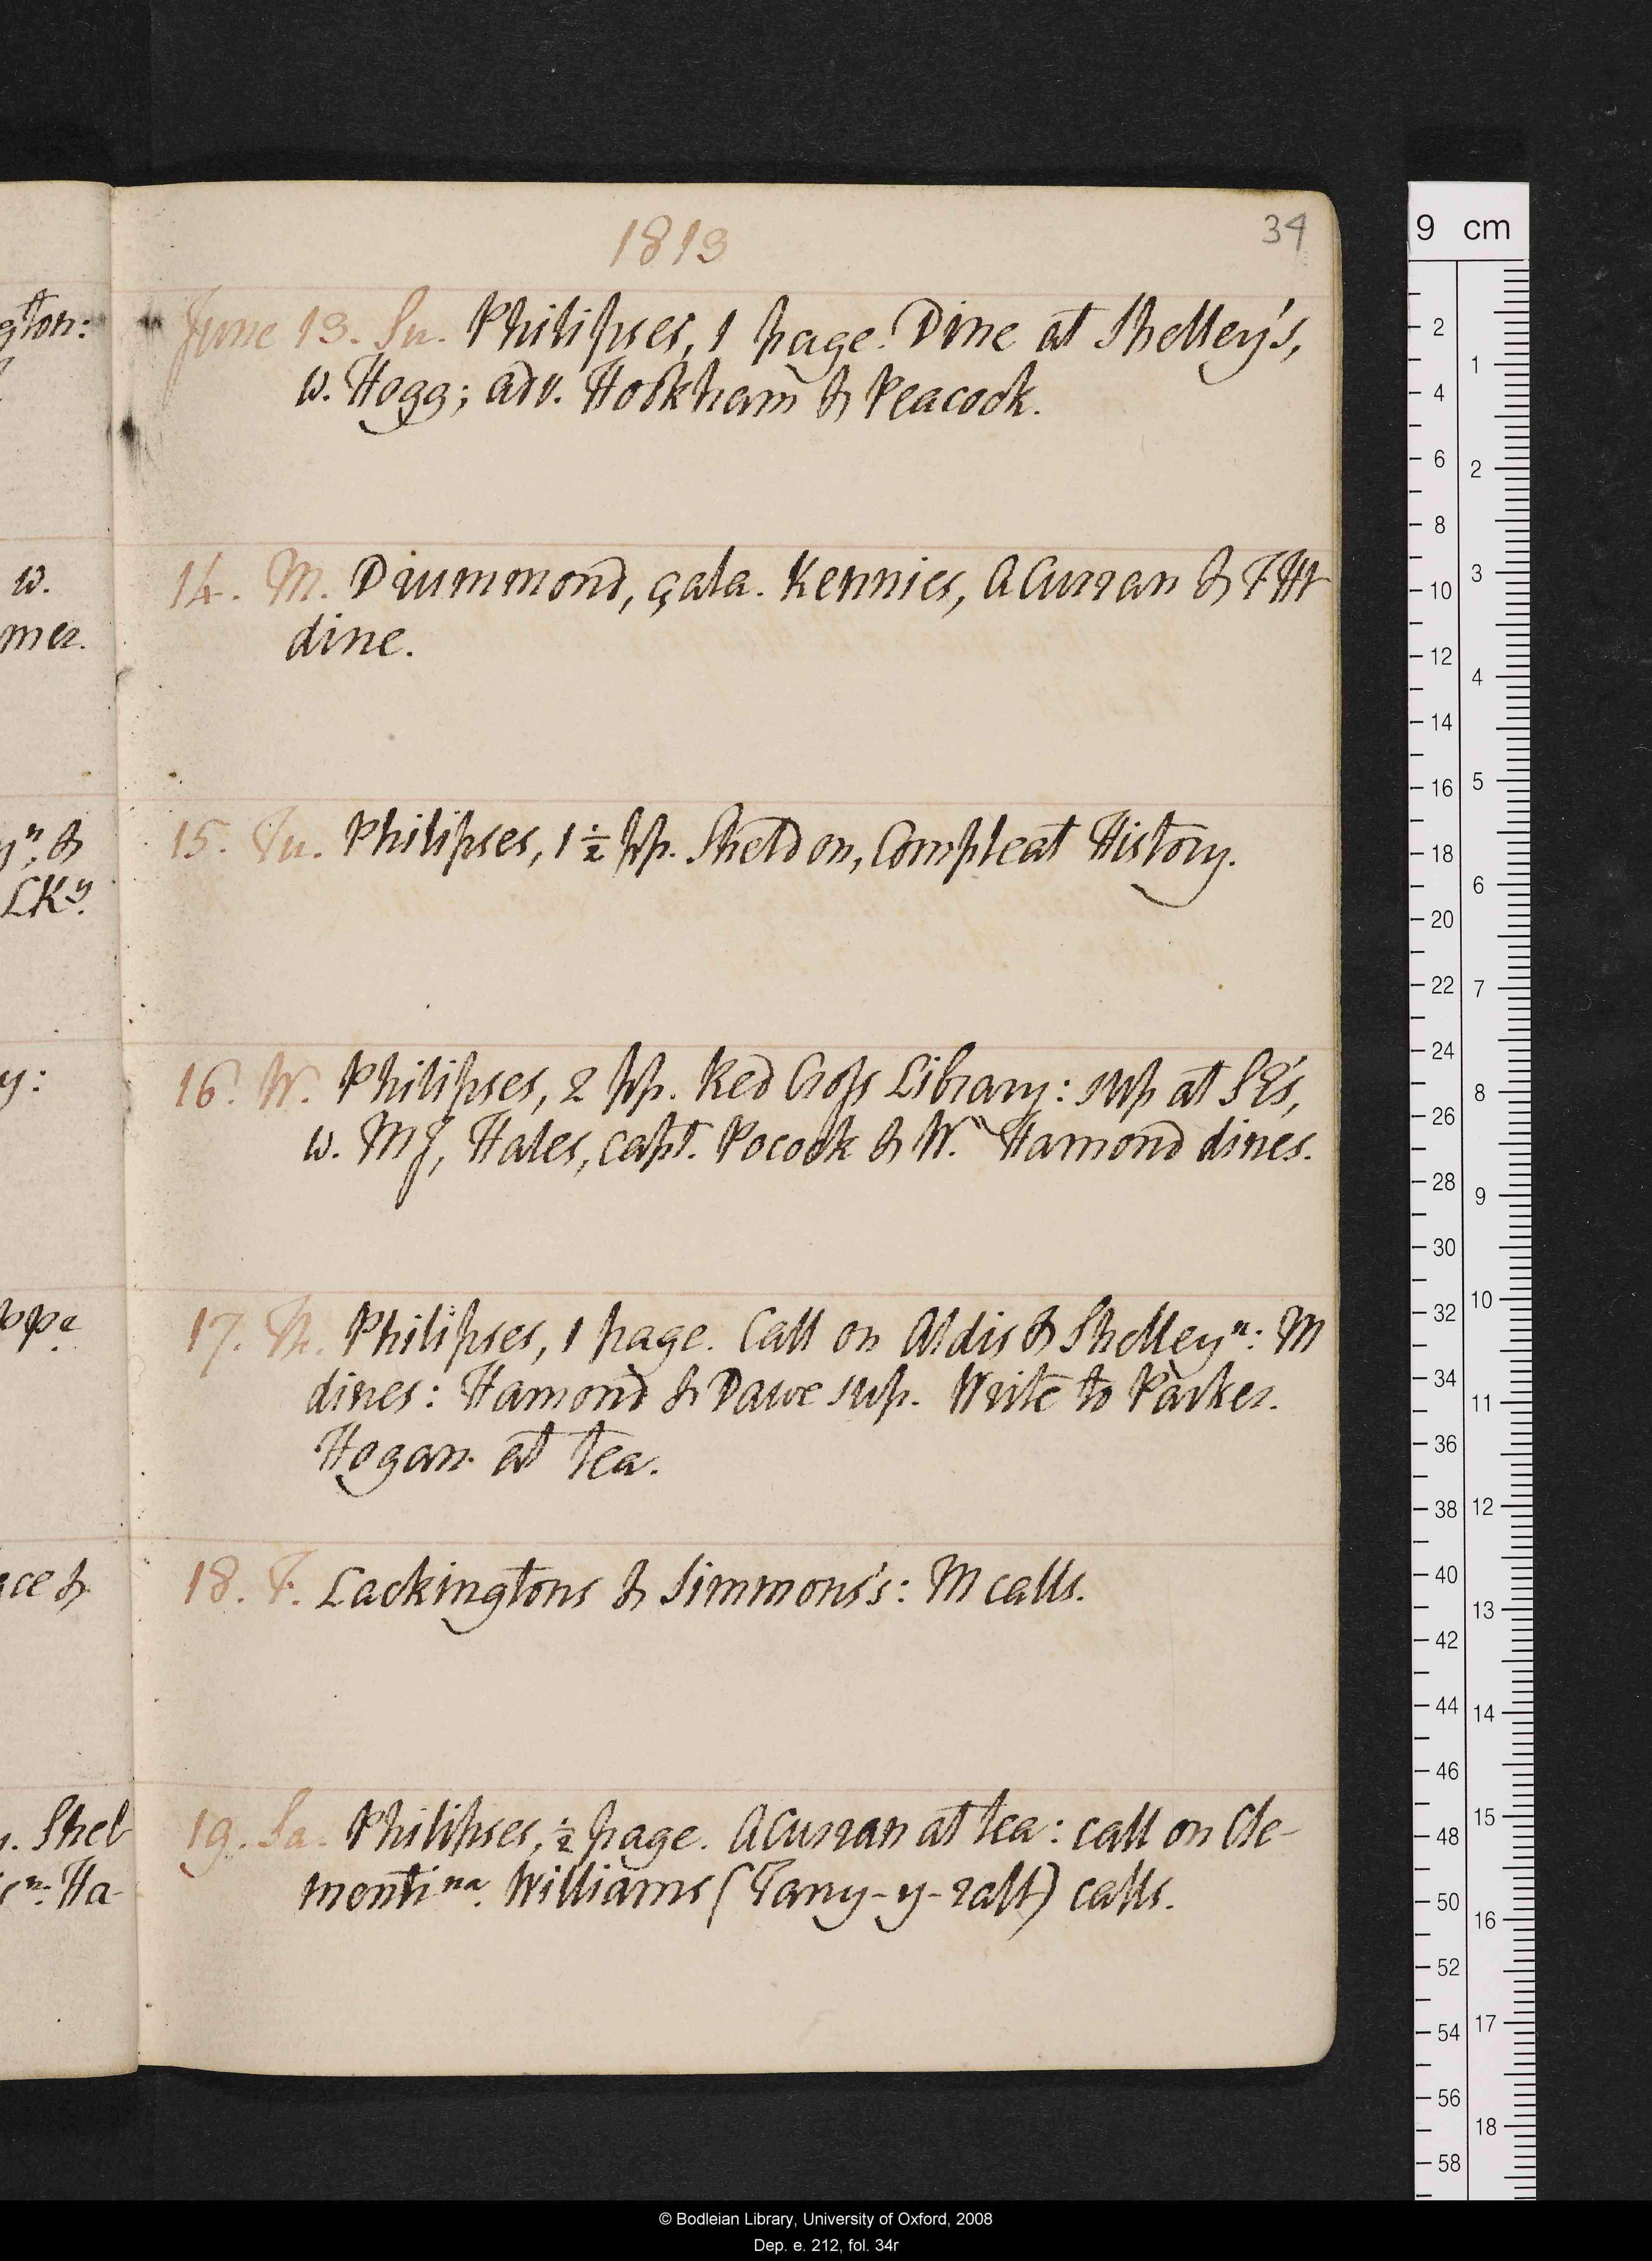 1813
34
June 13. Su. Philipses, 1 page. Dine at Shelley's,
w. Hogg; adv. Hookham & Peacock.
14. M. Drummond, çala. Kennies, ACurran & THt
dine.
15. Tu. Philipses, 1 1/2 pp. Sheldon, Compleat History.
16. W. Philipses, 2 pp. Red Cross Library: sup at
w. MJ, Hales, capt. Pocock & Wn. Hamond dines.
17. Th. Philipses, 1 page. Call on Aldis & Shelley n: M
dines: Hamond & Dawe sup. Write to Parker.
Hogan at tea.
18. F. Lackingtons & Simmons's: M calls.
19. Sa. Philipses, 1/2 page. ACurran at tea: call on Cle-
menti na. Williams (Tany-y-ralt) calls.
gton:
w.
mer.
yn, &
LKy.
y:
ppe
ce &
. Shel
n. Ha-
9 cm
2
4
6
8
10
12
14
16
18
20
22
24
26
28
30
32
34
36
38
40
42
44
46
48
50
52
54
56
58
1
2
3
4
5
6
7
8
9
10
11
12
13
14
15
16
17
18
© Bodleian Library, University of Oxford, 2008
Dep. e. 212, fol. 34r